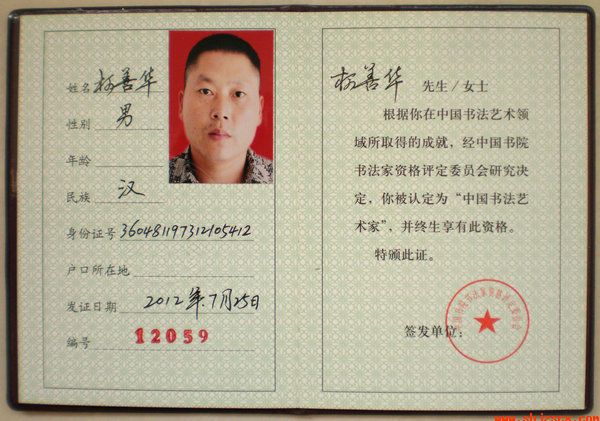 姓名 柯善华
性别 男
年龄
民族 汉
身份证号 360481197312105412
户口所在地
发证日期 2012年.7月25日
编号 12059
柯善华 先生/女士
根据你在中国书法艺术领
域所取得的成就，经中国书院
书法家资格评定委员会研究决
定，你被认定为“中国书法艺
术家”，并终生享有此资格。
特颁此证。
签发单位：